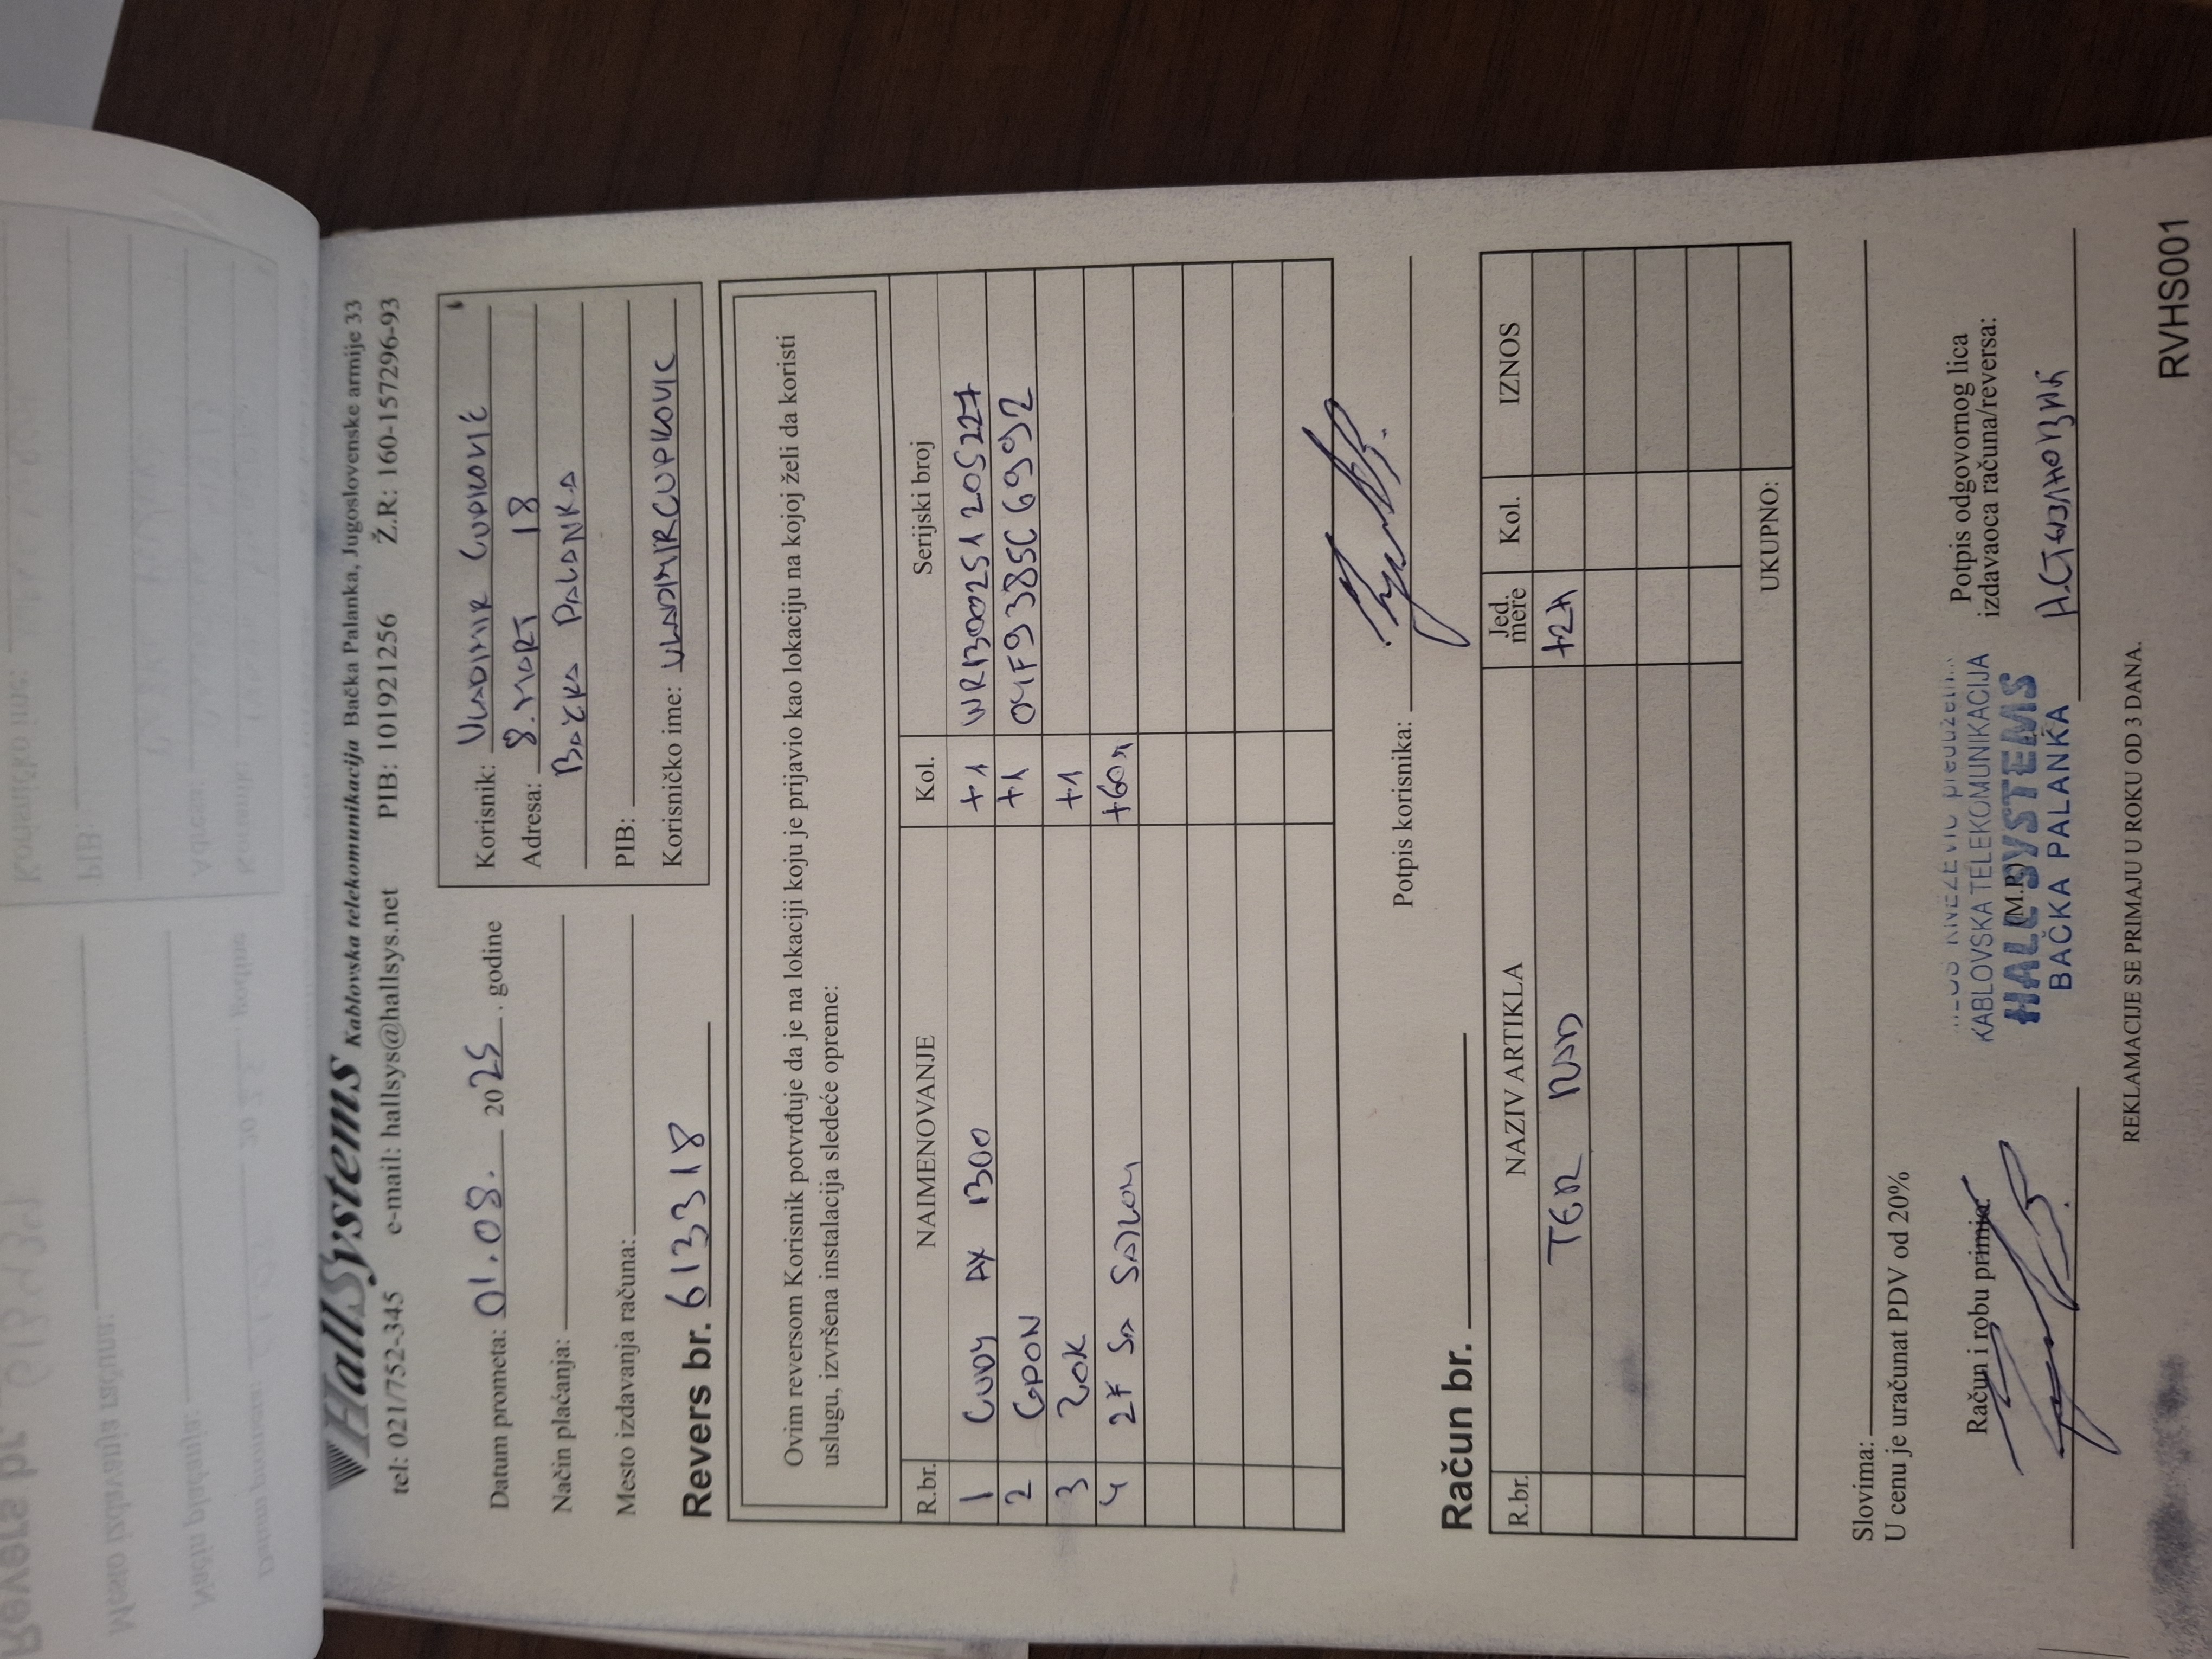 HallSystems Kablovska telekomunikacija Bačka Palanka, Jugoslovenske armije 33
tel: 021/752-345 e-mail: hallsys@hallsys.net PIB: 101921256 Ž.R: 160-157296-93
Datum prometa: 01.08. 2025. godine
Način plaćanja:
Mesto izdavanja računa:
Revers br. 613318
Korisnik: VLADIMIR CUPKOVIĆ
Adresa: 8. MART 18
BAČKA PALANKA
PIB:
Korisničko ime: VLADIMIRCUPKOVIC
Ovim reversom Korisnik potvrđuje da je na lokaciji koju je prijavio kao lokaciju na kojoj želi da koristi
uslugu, izvršena instalacija sledeće opreme:
R.br. NAIMENOVANJE Kol. Serijski broj
1 CUDY AX 1300 +1 WR1300251205227
2 GPON +1 04F9385C6992
3 ZOK +1
4 2X SA SAJLOM +60m
Potpis korisnika:
Račun br.
R.br. NAZIV ARTIKLA Jed. mere Kol. IZNOS
TER RAD
UKUPNO:
Slovima:
U cenu je uračunat PDV od 20%
Račun i robu primio:
(M.P.)
KABLOVSKA TELEKOMUNIKACIJA
HALL SYSTEMS
BAČKA PALANKA
Potpis odgovornog lica
izdavaoca računa/reversa:
REKLAMACIJE SE PRIMAJU U ROKU OD 3 DANA.
RVHS001